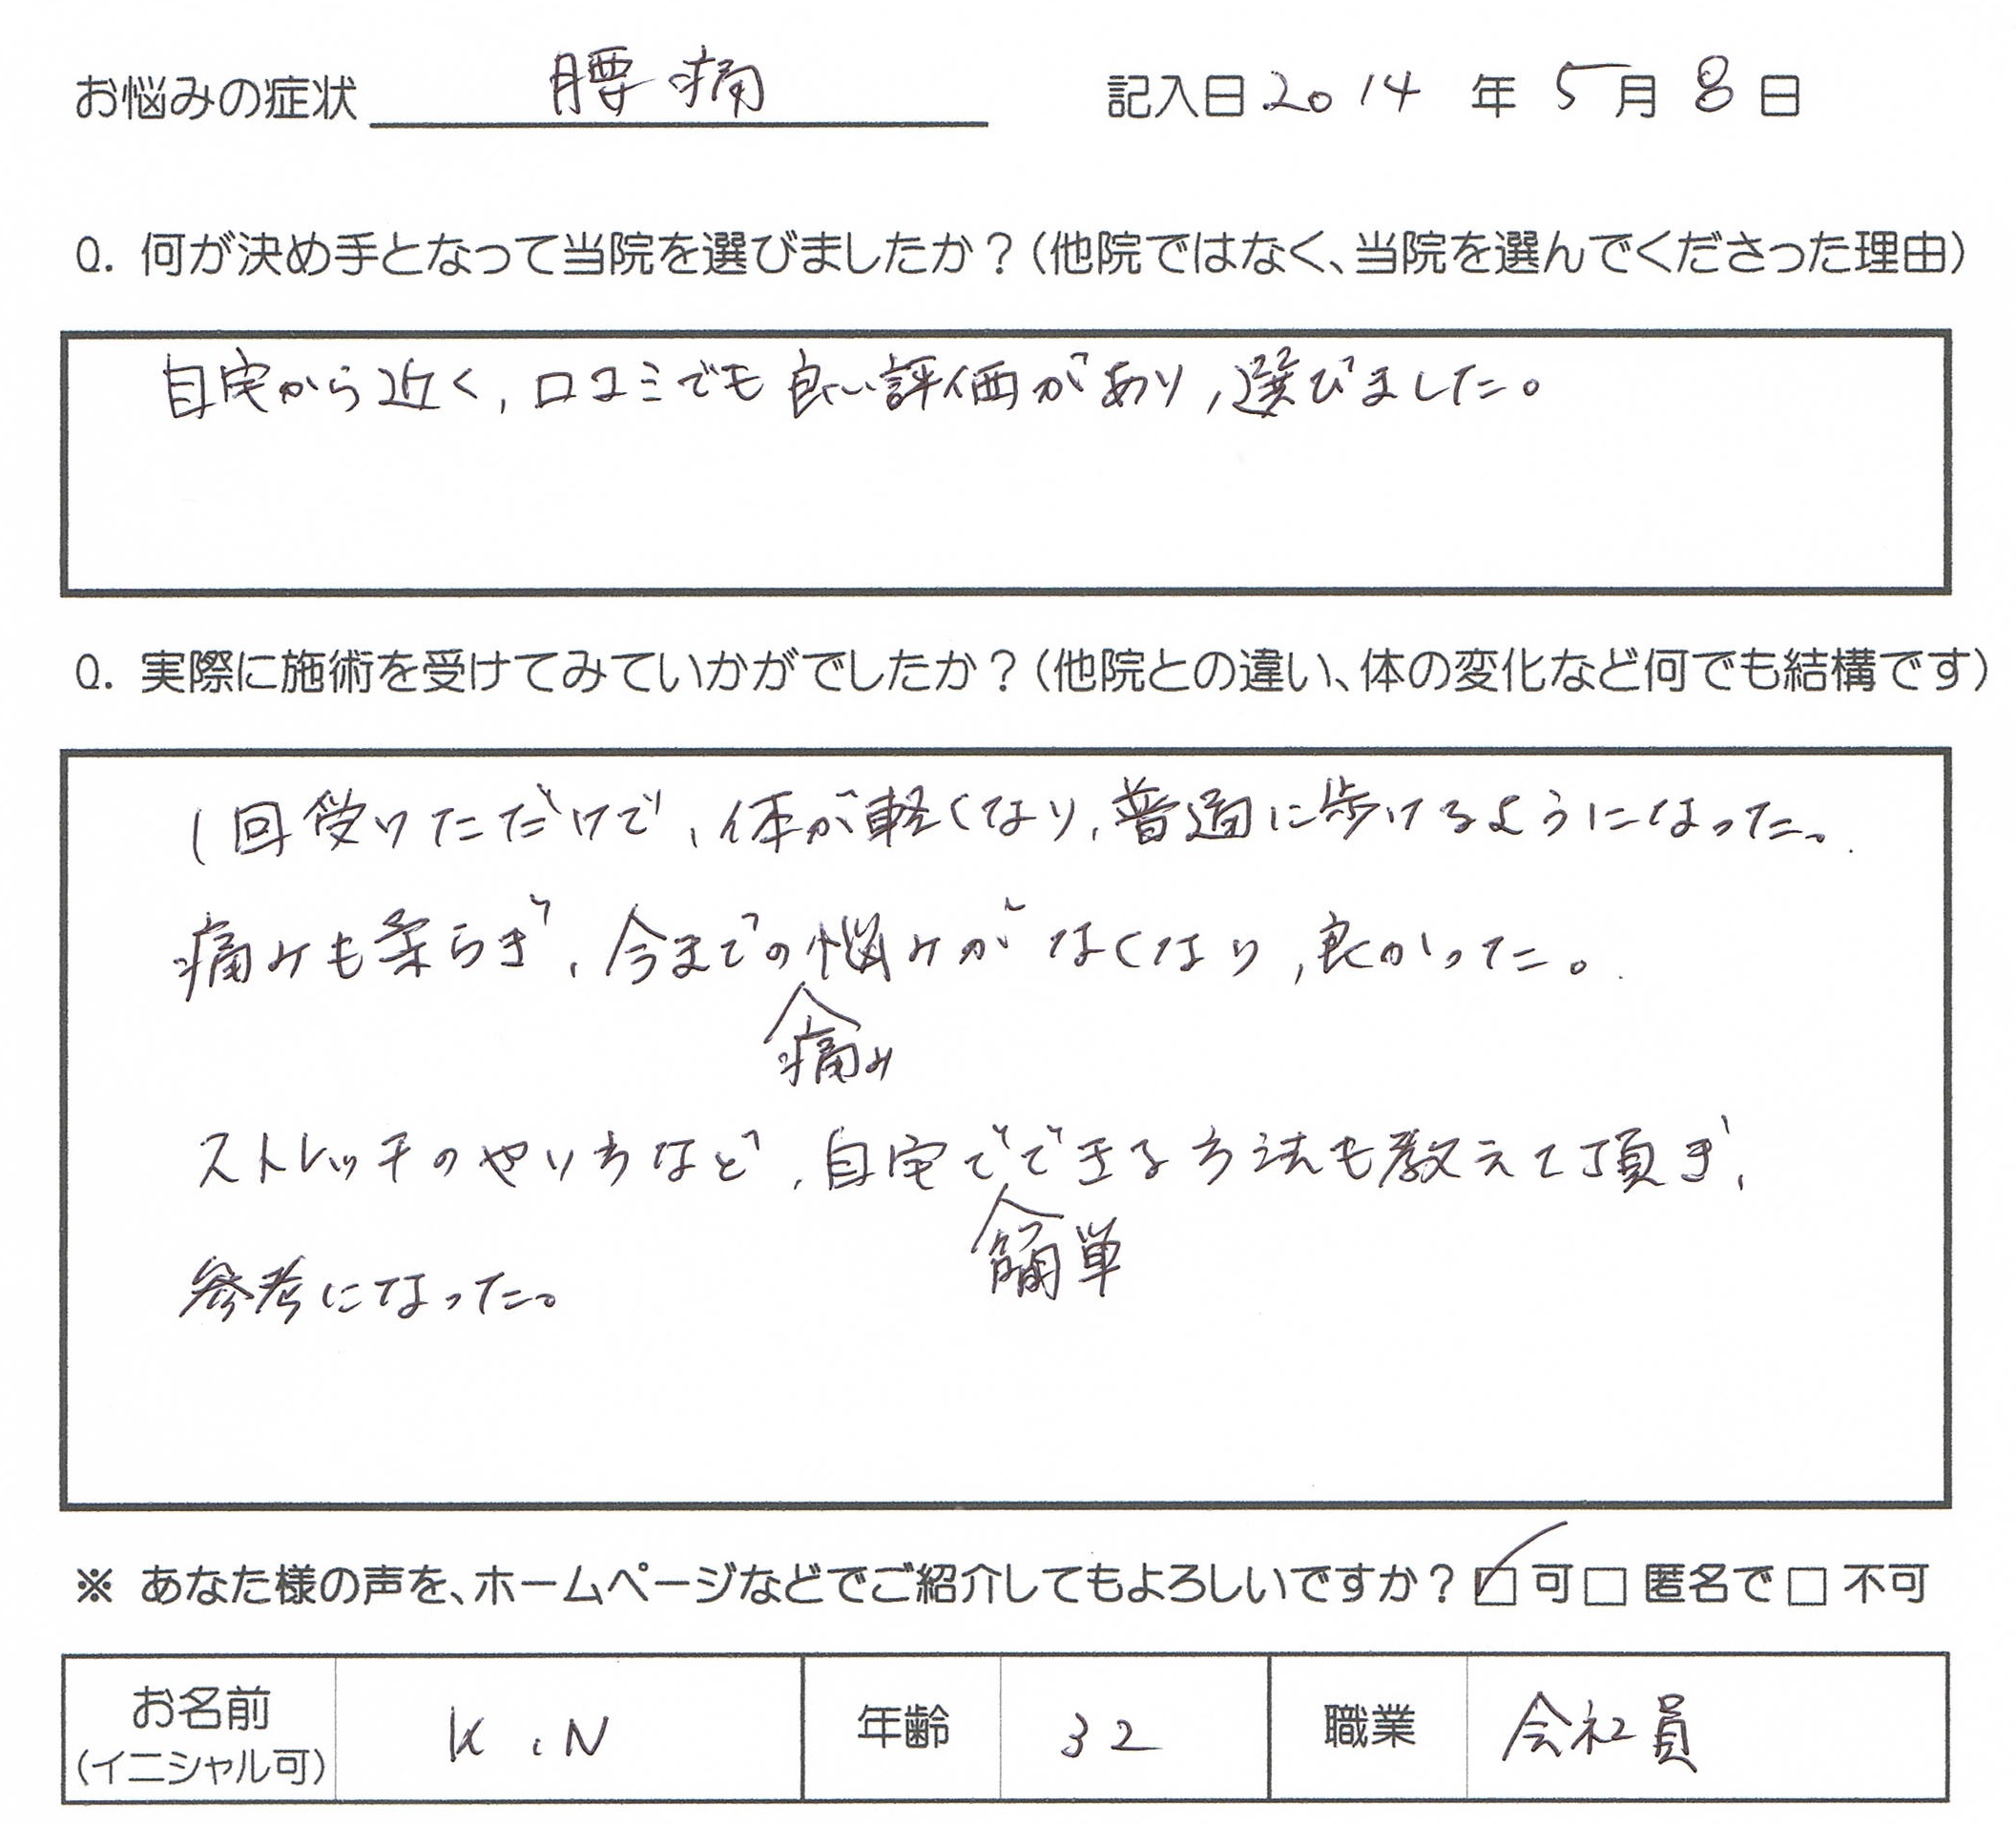 お悩みの症状 腰痛 記入日 2014 年 5 月 8 日
Q. 何が決め手となって当院を選びましたか？（他院ではなく、当院を選んでくださった理由）
自宅から近く, 口コミでも良い評価があり, 選びました。
Q. 実際に施術を受けてみていかがでしたか？（他院との違い、体の変化など何でも結構です）
1回受けただけで、体が軽くなり、普通に歩けるようになった。
痛みも柔らぎ、今までの悩みがなくなり, 良かった。
痛み
ストレッチのやり方など、自宅でできる方法も教えて頂き、
簡単
参考になった。
※ あなた様の声を、ホームページなどでご紹介してもよろしいですか？ ☑ 可 □ 匿名で □ 不可
お名前 K.N 年齢 32 職業 会社員
（イニシャル可）